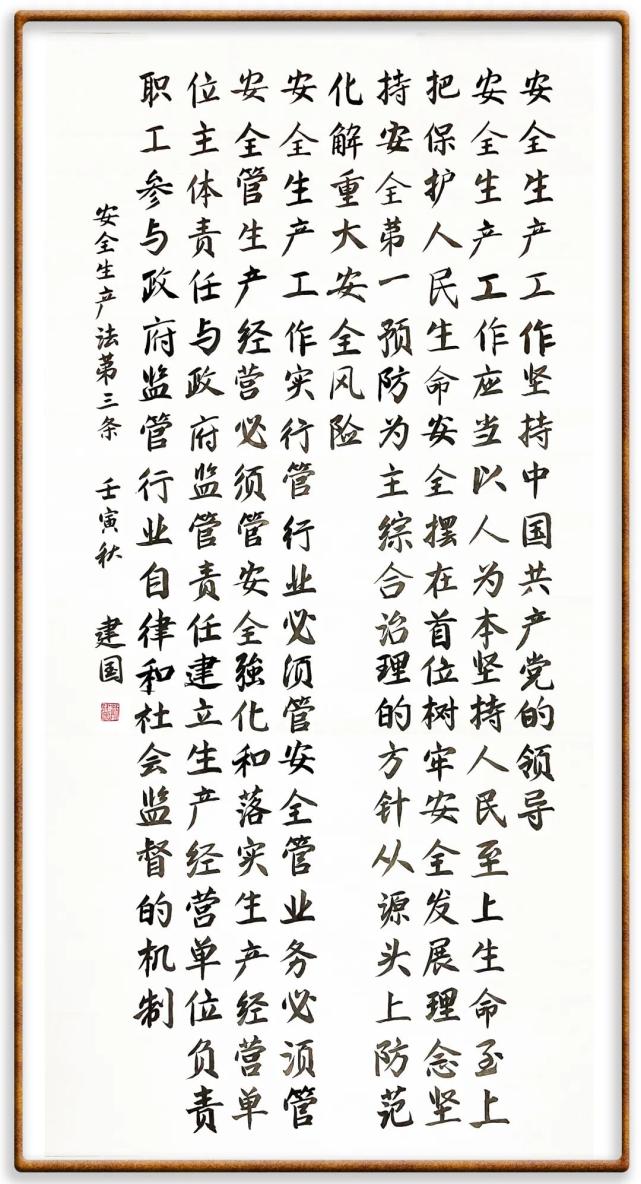 安全生产工作坚持中国共产党的领导
安全生产工作应当以人为本坚持人民至上生命至上
把保护人民生命安全摆在首位树牢安全发展理念坚
持安全第一预防为主综合治理的方针从源头上防范
化解重大安全风险
安全生产工作实行管行业必须管安全管业务必须管
安全管生产经营必须管安全强化和落实生产经营单
位主体责任与政府监管责任建立生产经营单位负责
职工参与政府监管行业自律和社会监督的机制
安全生产法第三条 壬寅秋 建国